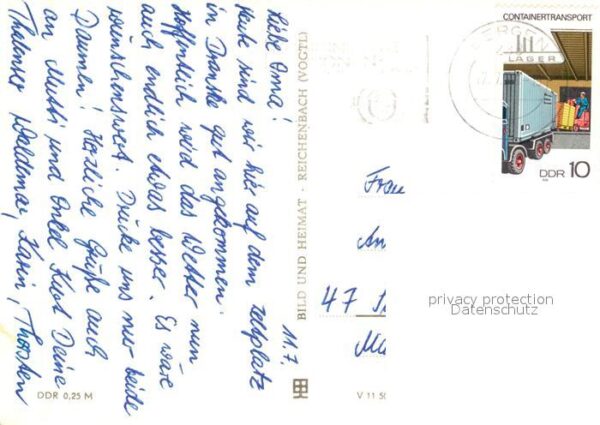 11.7.
Liebe Oma!
Heute sind wir hier auf dem Zeltplatz
in Dranske gut angekommen.
Hoffentlich wird das Wetter nun
auch endlich etwas besser. Es wäre
wünschenswert. Drücke uns nur beide
Daumen! Herzliche Grüße auch
an Mutti und Onkel Kurt Deine
Thalenser Waldemar, Karin, Thorsten
BILD UND HEIMAT · REICHENBACH (VOGTL)
DDR 0,25 M
V 11 50
CONTAINERTRANSPORT
LAGER
DDR 10
BERGEN
Frau
An
47
privacy protection
Datenschutz